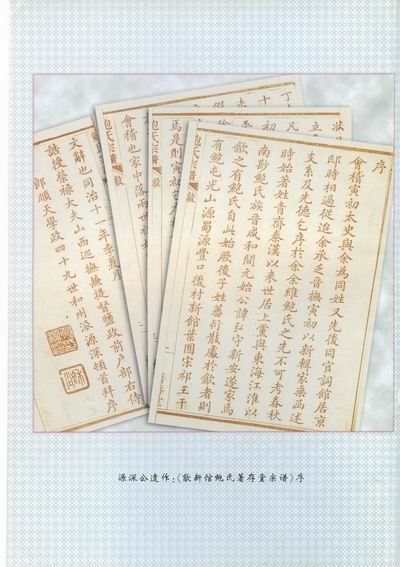 序
會稽寅初太史與余為同姓又先後同官詞館居京
邸時相過從迨余承乏晉撫寅初以新輯家乘函述
支系及先德乞序於余余維鮑氏之先不可考春秋
時始著姓青齊秦漢以來世居上黨與東海江淮以
南尠鮑氏族晉咸和間元始公諱弘守新安遂家焉
歙之有鮑氏自此始厥後子姓蕃衍散處於歙者則
有鮑屯光山源蜀源豐口後村新館葉園宗祁王干
焉是則寅初
鮑氏宗譜 敘
鮑氏宗譜 敘
會稽也家中落兩世
鮑氏宗譜 敘
文辭也同治十一年季夏序
誥授榮祿大夫山西巡撫兼提督鹽政前户部右侍
郎順天學政四十九世和州派源深頓首拜序
源深公遗作：《歙新馆鲍氏著存堂宗谱》序